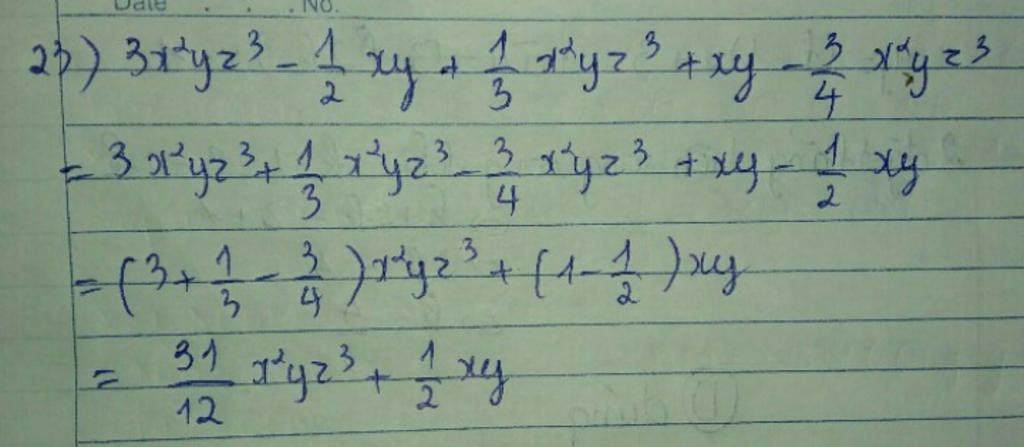 Date . . . No.
23) 3x²yz³ - 1/2 xy + 1/3 x²yz³ + xy - 3/4 x²yz³
= 3x²yz³ + 1/3 x²yz³ - 3/4 x²yz³ + xy - 1/2 xy
= (3 + 1/3 - 3/4) x²yz³ + (1 - 1/2) xy
= 31/12 x²yz³ + 1/2 xy